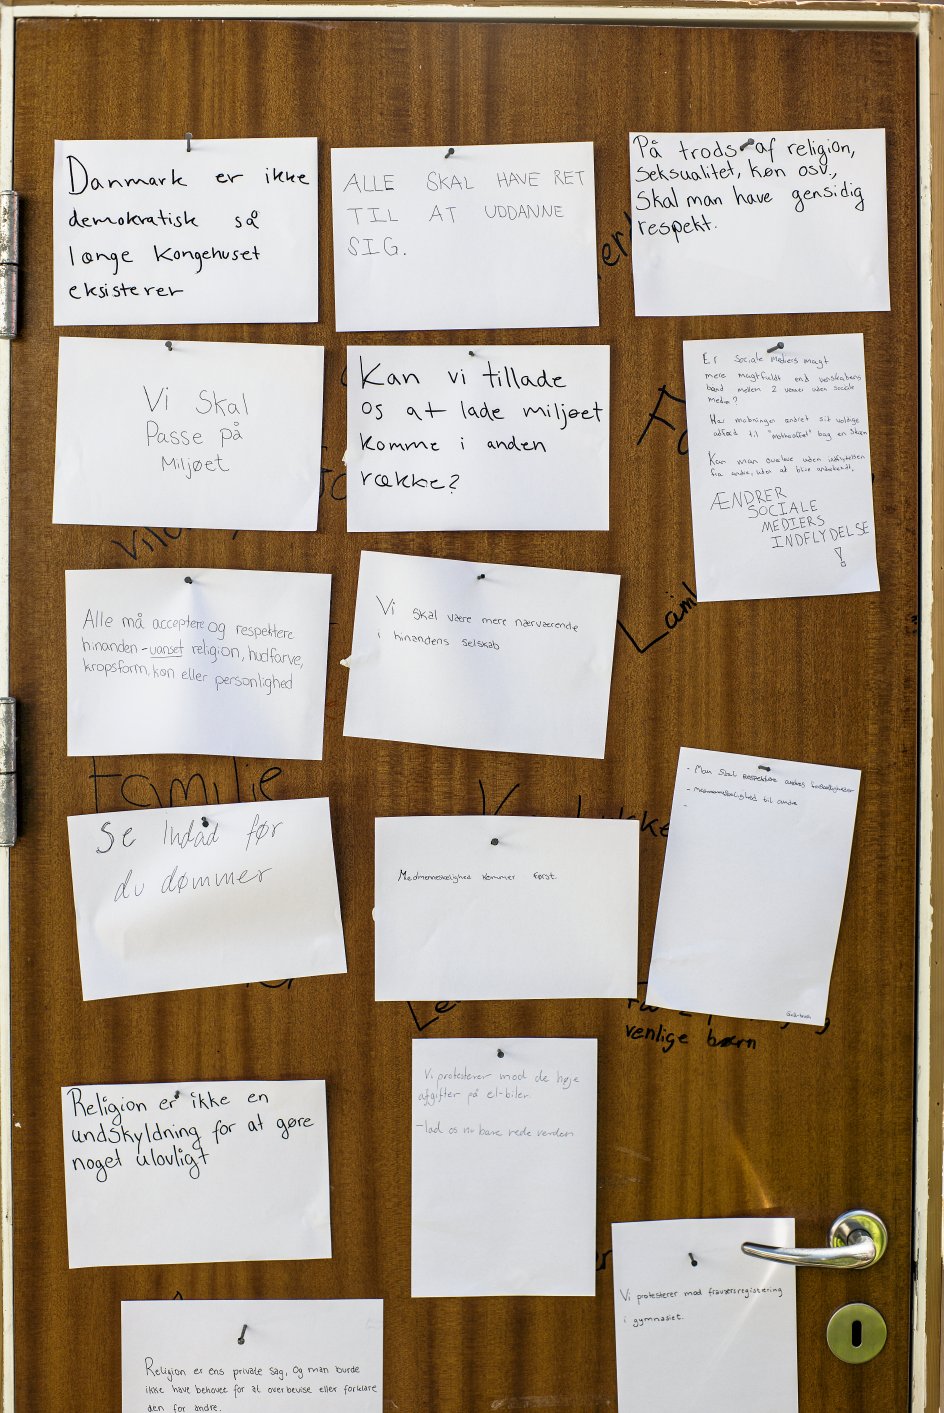 Danmark er ikke
demokratisk så
længe Kongehuset
eksisterer
ALLE SKAL HAVE RET
TIL AT UDDANNE
SIG.
På trods af religion,
seksualitet, køn osv.,
skal man have gensidig
respekt.
Vi skal
Passe på
Miljøet
Kan vi tillade
os at lade miljøet
komme i anden
række?
Er Sociale Mediers magt
mere magtfuldt end venskabens
bånd mellem 2 venner uden sociale
medie?
Har mobningen ændret sit voldige
adfærd til bag en skærm
Kan man overleve uden indflydelsen
fra andre, uden at blive
ÆNDRER
SOCIALE
MEDIERS
INDFLYDELSE
!
Alle må acceptere og respektere
hinanden - uanset religion, hudfarve,
kropsform, køn eller personlighed
Vi skal være mere nærværende
i hinandens selskab
Familie
Se indad før
du dømmer
Medmenneskelighed kommer først.
- Man skal respektere andres forskelligheder
- Medmenneskelighed til andre
-
venlige børn
Religion er ikke en
undskyldning for at gøre
noget ulovligt
Vi protesterer mod de høje
afgifter på el-biler
- lad os nu bare rede verden
Vi protesterer mod fraværsregistering
i gymnasiet.
Religion er ens private sag, og man burde
ikke have behovet for at overbevise eller forklare
den for andre.